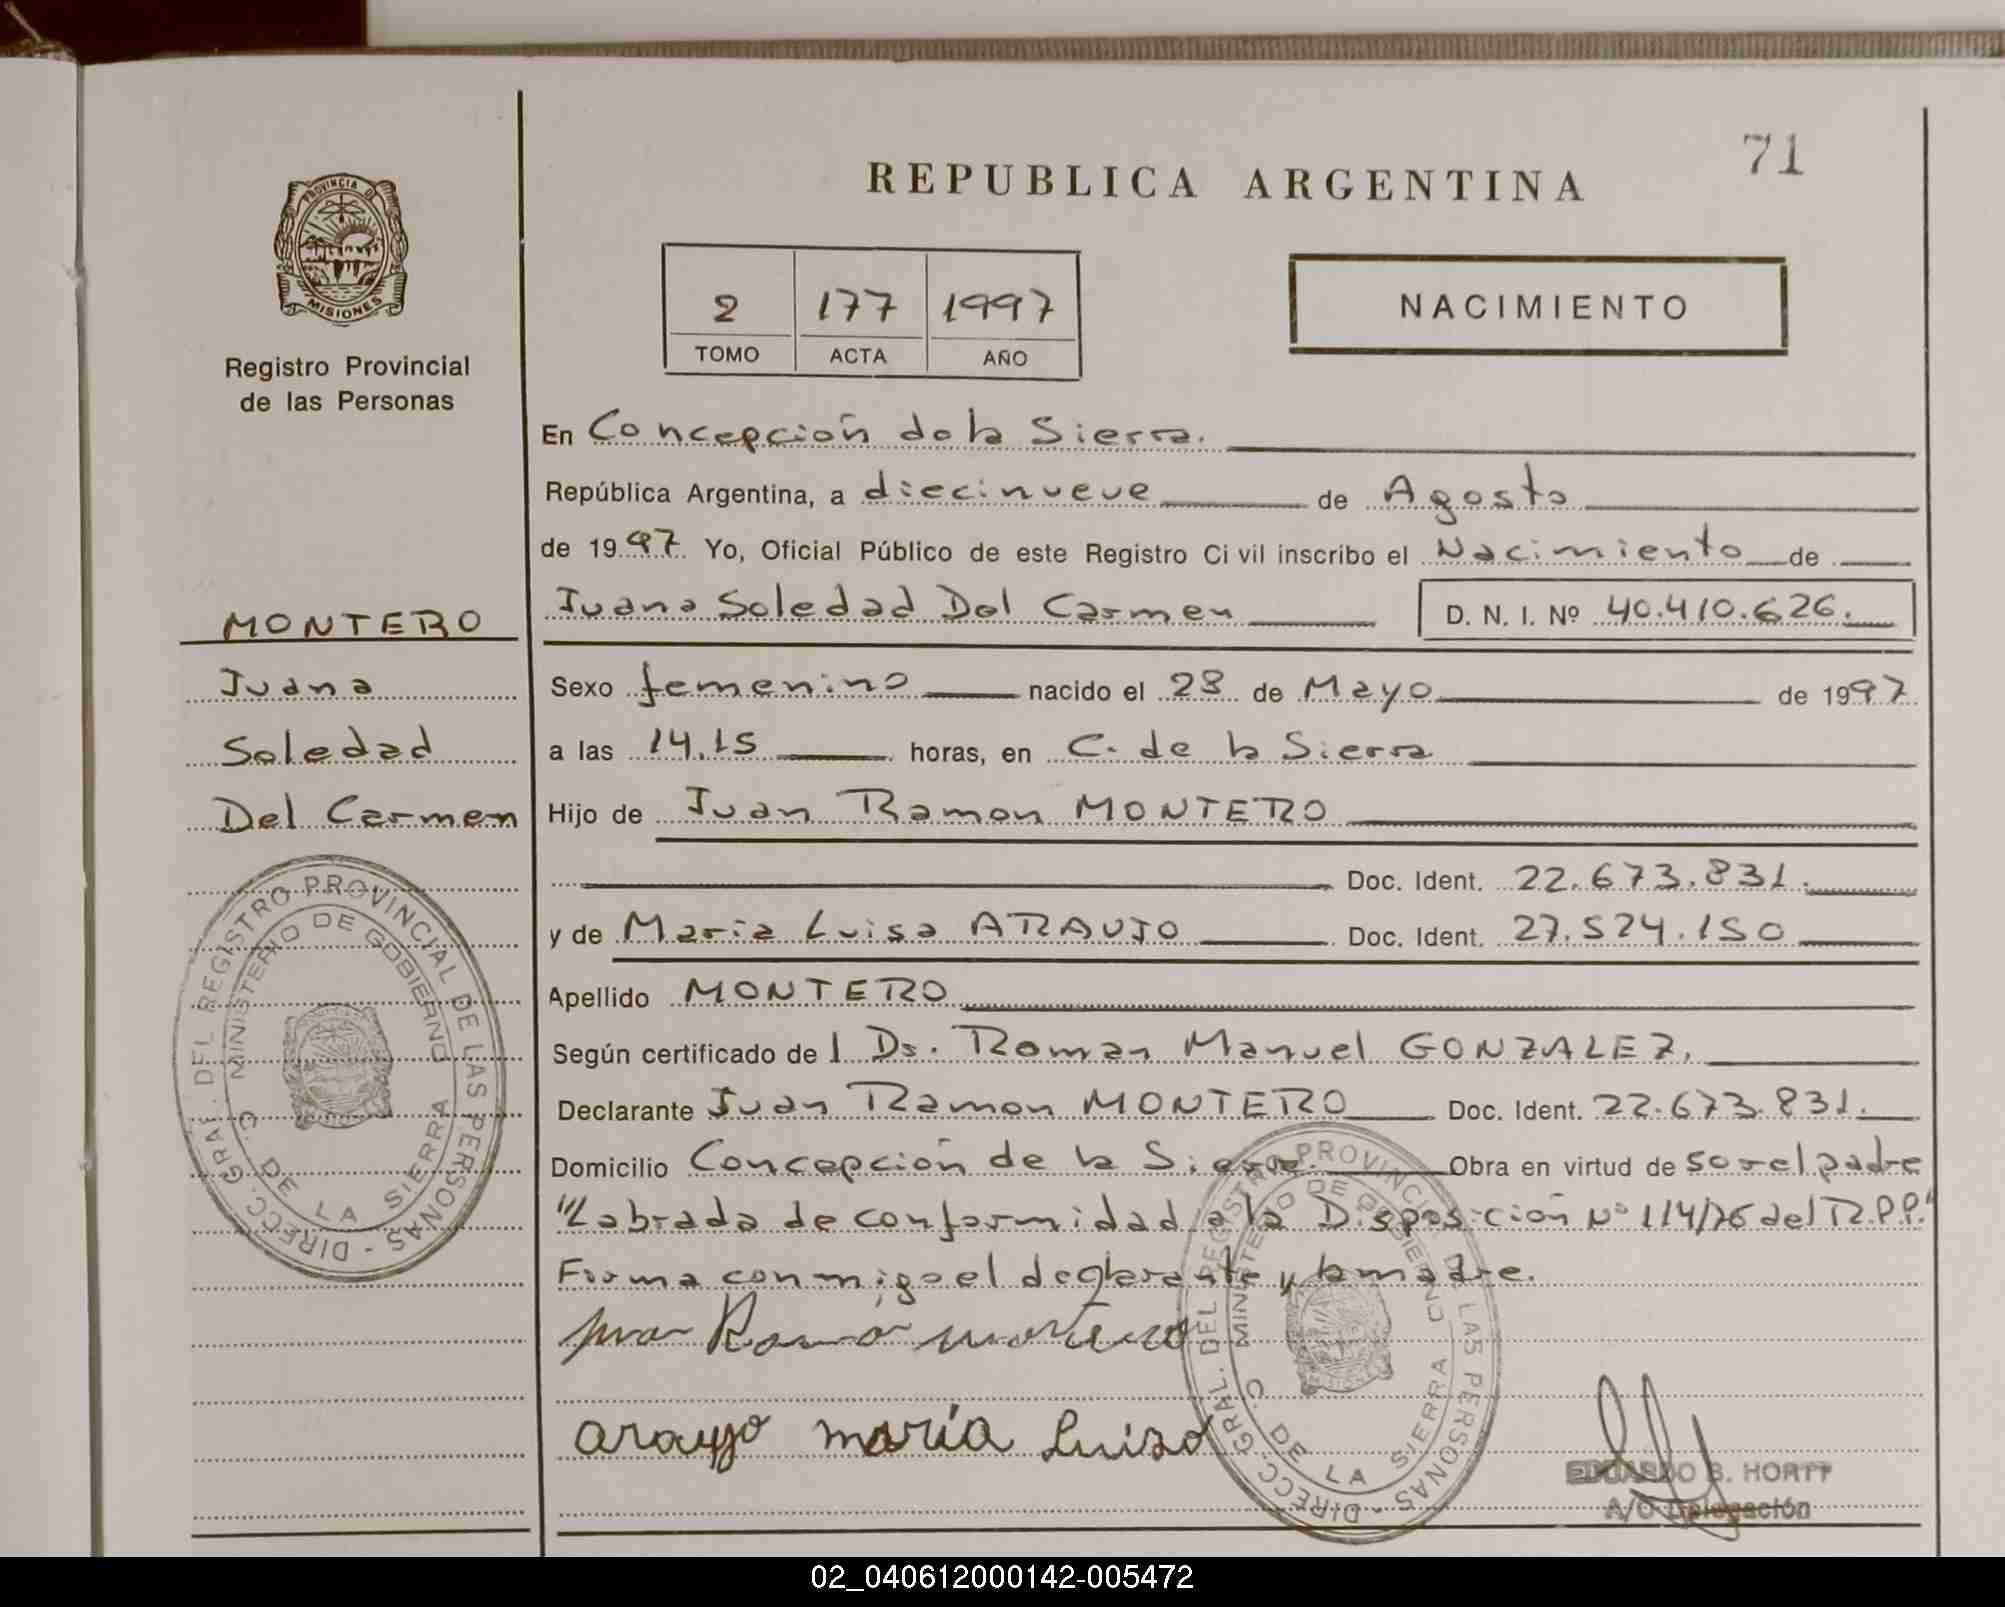 71
REPUBLICA ARGENTINA
PROVINCIA DE
MISIONES
Registro Provincial
de las Personas
2 177 1997
TOMO ACTA AÑO
NACIMIENTO
En Concepción de la Sierra.
República Argentina, a diecinueve de Agosto
de 1997. Yo, Oficial Público de este Registro Civil inscribo el Nacimiento de
Juana Soledad Del Carmen D. N. I. Nº 40.410.626.
MONTERO
Juana
Soledad
Del Carmen
Sexo femenino nacido el 28 de Mayo de 1997
a las 14.15 horas, en C. de la Sierra
Hijo de Juan Ramon MONTERO
Doc. Ident. 22.673.831.
y de Maria Luisa ARAUJO Doc. Ident. 27.524.150
Apellido MONTERO
Según certificado de l Dr. Roman Manuel GONZALEZ.
Declarante Juan Ramon MONTERO Doc. Ident. 22.673.831.
Domicilio Concepción de la Sierra. Obra en virtud de ser el padre
"Labrada de conformidad a la Disposición Nº 114/76 del R.P.P."
Firma conmigo el declarante y la madre.
juan Ramon montero
araujo maría Luisa
DIRECC. GRAL. DEL REGISTRO PROVINCIAL DE LAS PERSONAS
MINISTERIO DE GOBIERNO
C. DE LA SIERRA
DIRECC. GRAL. DEL REGISTRO PROVINCIAL DE LAS PERSONAS
MINISTERIO DE GOBIERNO
C. DE LA SIERRA
EDUARDO B. HORTT
A/C Delegación
02_040612000142-005472